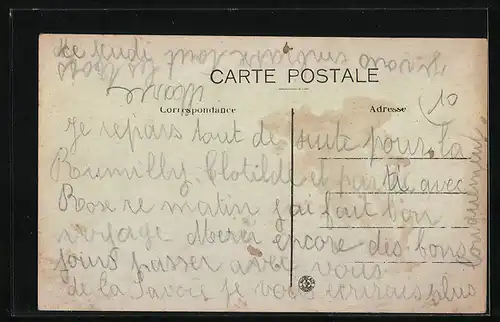 ce jeudi
Je vous embrasse tout
Marie
CARTE POSTALE
Correspondance
Adresse
10
Je repars tout de suite pour la
Rumilly. Clotilde et partie avec
Rose se matin j'ai fait bon
voyage Merci encore des bons
jours passer avec vous
de la Savoie je vous écrirais plus
longuement